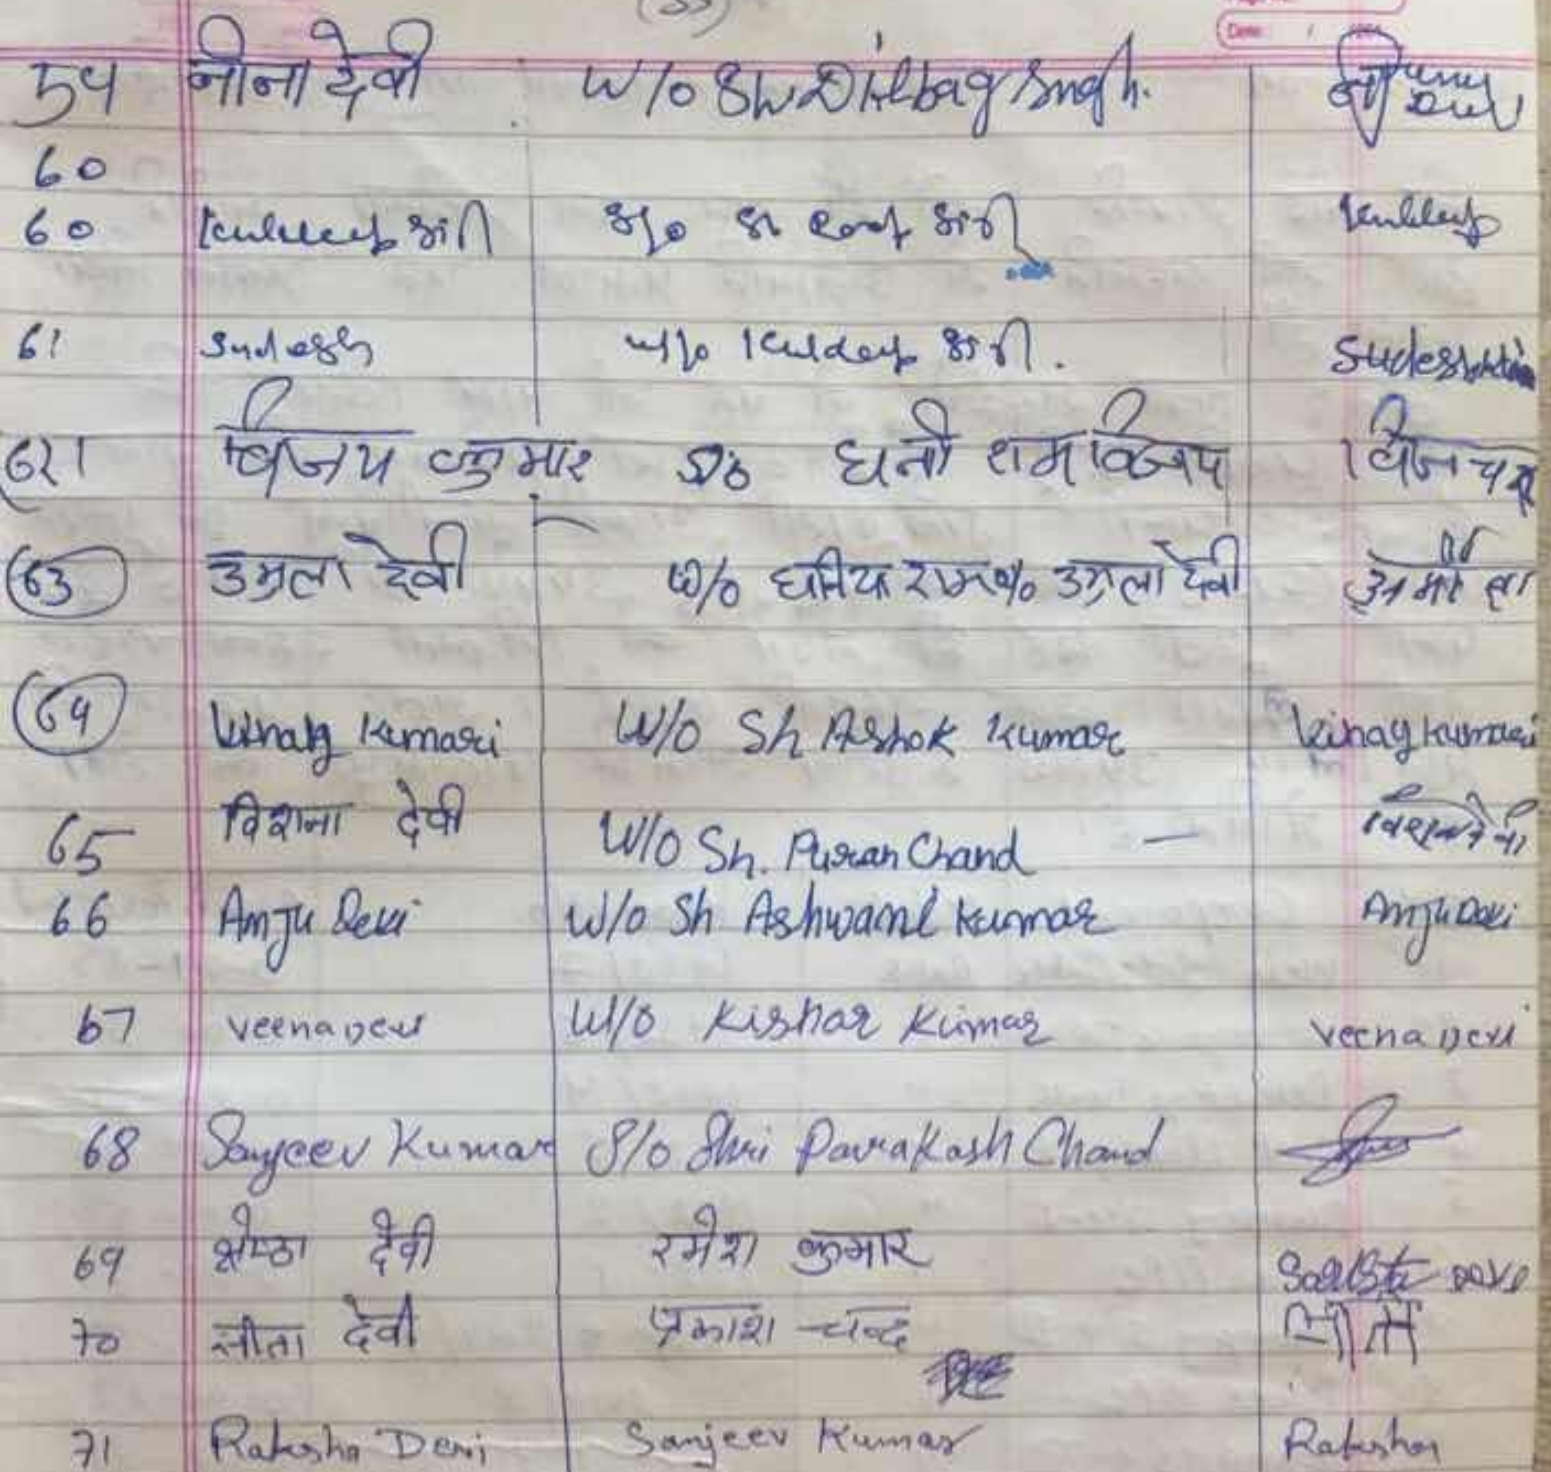 (53)
Date: / /
59 नीना देवी W/o Sh Dilbag Singh.
60
60 Kuldeep S/o Sh Kuldeep
61 Sudesh w/o Kuldeep Sudesh
621 विजय कुमार S/o धनी राम विजय
63 उमला देवी W/o राम उमला देवी
64 Vinay Kumari W/o Sh Ashok Kumar Vinay Kumari
65 विशना देवी W/o Sh. Puran Chand —
66 Anju Devi W/o Sh Ashwani Kumar Anju Devi
67 Veena Devi W/o Kishor Kumar Veena Devi
68 Sanjeev Kumar S/o Shri Parakash Chand
69 श्रेष्ठा देवी रमेश कुमार
70 सीता देवी प्रकाश चन्द
71 Raksha Devi Sanjeev Kumar Raksha